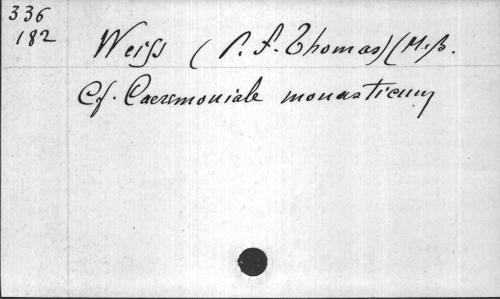 336
182
Weiss (P. F. Thomas) (Miß.
Cf. Caeremoniale monasticum